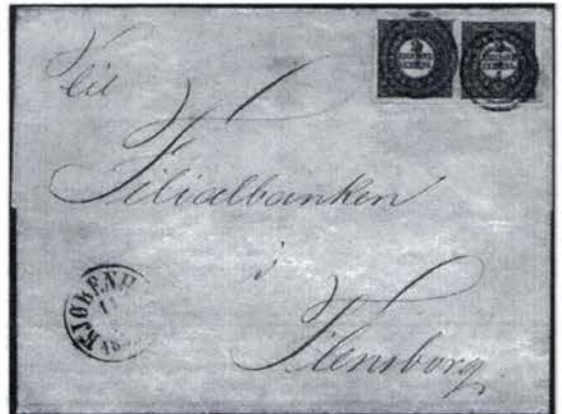 Til
Filialbanken
i
Flensborg.
KJØBENH